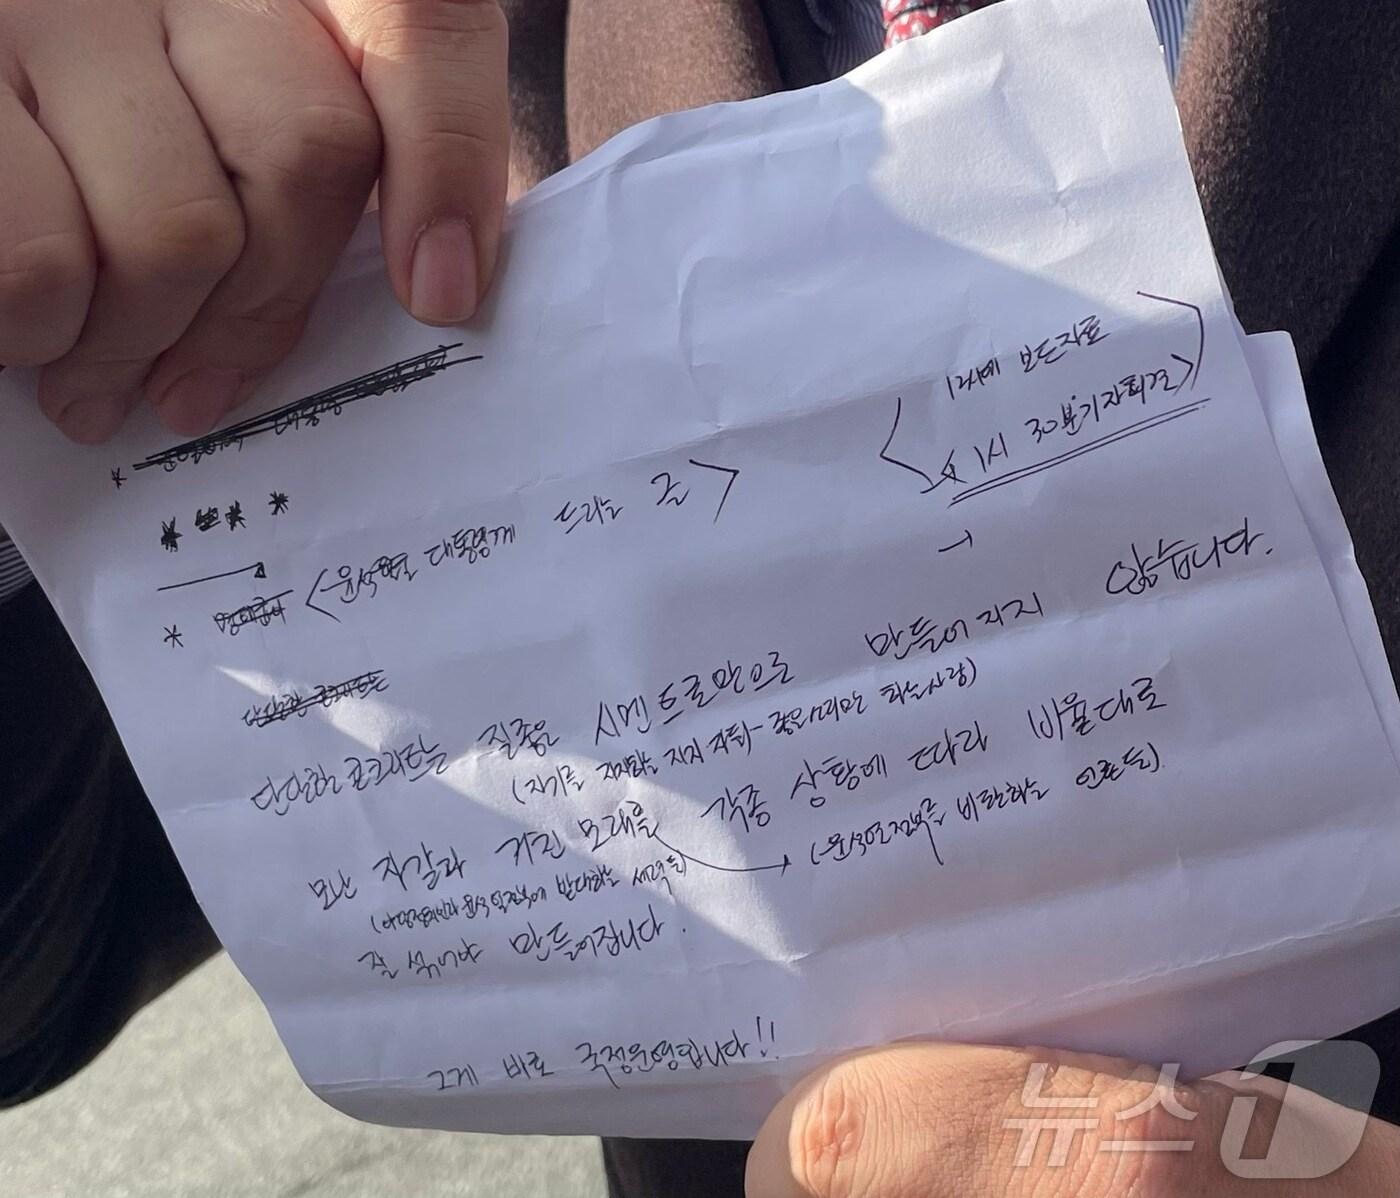 12시에 보도자료
1시 30분 기자회견>
*
*
<윤석열 대통령께 드리는 글>
*
단단한 콘크리트는 질좋은 시멘트로만으로 만들어지지 않습니다.
(자기를 지지하는 지지자들 - 좋은소리만 하는사람)
모난 자갈과 거친 모래을 각종 상황에 따라 비율대로
(야당정치인과 윤석열정부에 반대하는 세력들)
(윤석열정부를 비판하는 언론들)
잘 섞어야 만들어집니다.
그게 바로 국정운영입니다!!
뉴스1